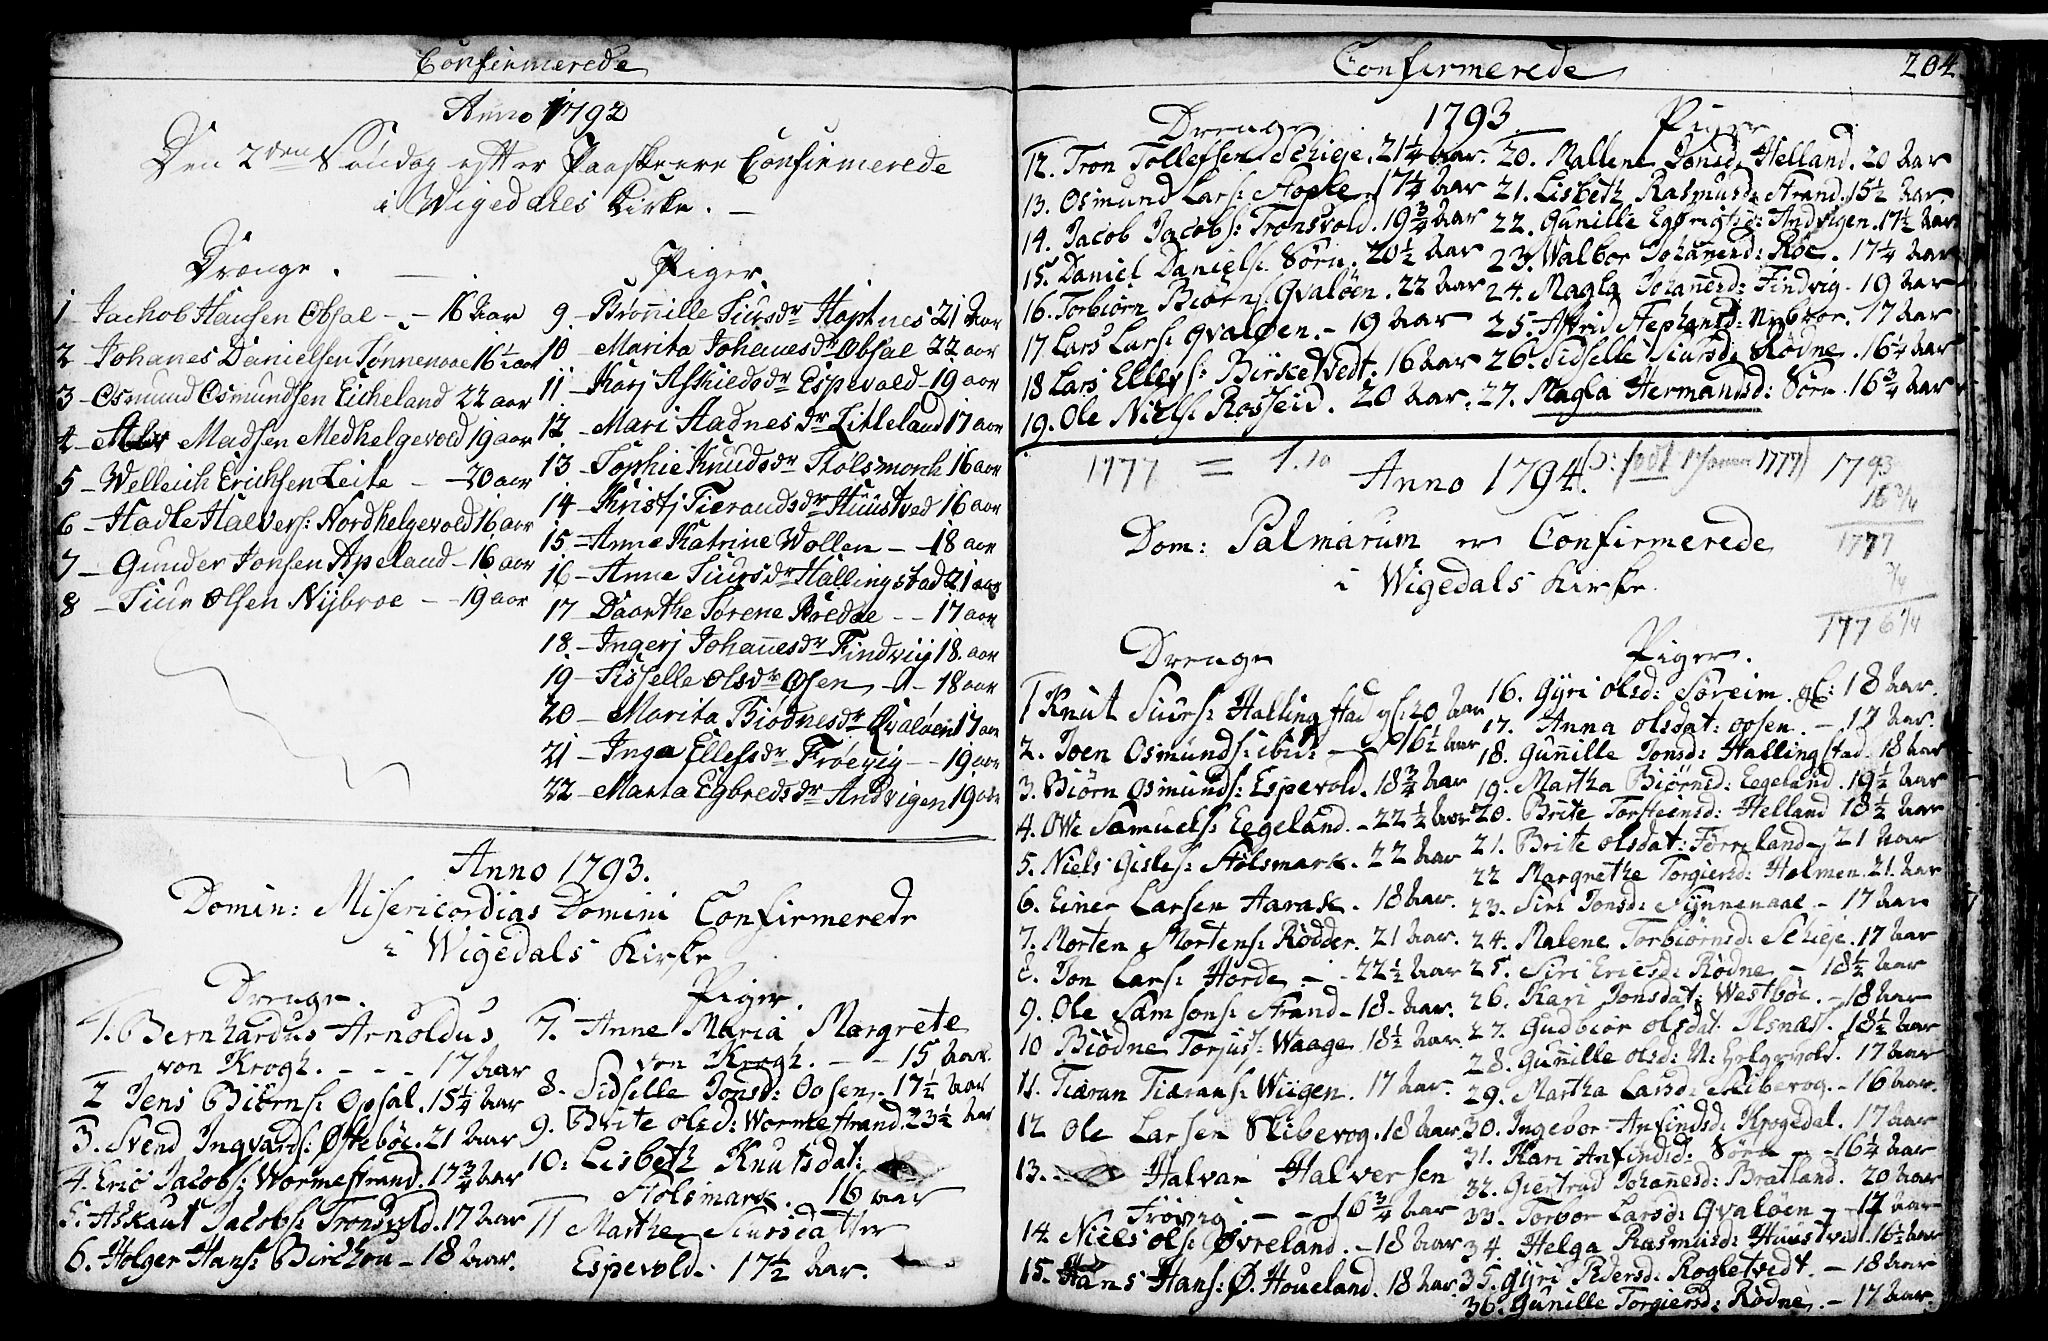 Confirmerede
Anno 1792
Den 2den Søndag efter Paaskeere Confirmerede
i Wigedahls Kirke.
Drenge.
1 Jachob Hansen Obsal - 16 aar
2 Johanes Danielsen Tonnenaae 16½ aar
3 - Osmund Osmundsen Eicheland 22 aar
4 - Madsen Medhelgevold 19 aar
5 - Welleich Erichsen Leite - 20 aar
6 - Hadle Halvers: Nordhelgevold 16 aar
7 - Gunder Jonsen Apeland - 16 aar
8 - Siur Olsen Nÿbroe - 19 aar
Piger
9 - Brønille Siursdr Hapnes 21 aar
10 - Marita Johanesdr Obsal 22 aar
11 - Karj Askiedsdr Espevold - 19 aar
12 - Mari Hadnesdr Litleland 17 aar
13 - Sophie Knudsdr Stolsmork 16 aar
14 - Kristj Tierandsdr Huustved 16 aar
15 - Anne Katrine Wollen - 18 aar
16 - Anne Siursdr Hallingstad 21 aar
17 Daarthe Sørene Bredal - - 17 aar
18 - Ingerj Johañesdr Findvig 18. aar
19 - Sisselle Olsdr Osen - - 18 aar
20 - Marita Biødnesdr Qvaløen 17 aar
21 - Inga Ellefsdr Frøevig - - 19 aar
22 - Marta Egbredsdr Andvigen 19 aar
Anno 1793.
Domin: Misericordias Domini Confirmerede
i Wigedals Kirke
Drenge.
1. Bernhardus Arnoldus
von Krogh. - - - 17 aar
2 Jens Biørns: Opsal. 15¼ aar
3. Svend Ingvards: Østebøe. 21 aar
4. Eric Jacobs: Wormestrand. 17¾ aar
5. Askaut Jacobs: Tronsvold. 17 aar
6. Holger Hans: Birchou - 18 aar.
Piger.
7. Anne Maria Margrete
von Krogh. - - 15 aar
8. Sidselle Jonsd: Oosen. - 17½ aar
9. Brite Olsd: Wormestrand. 23½ aar
10: Lisbeth Knutsdat:
Stolsmark. 16 aar
11 Marthe Siursdatter
Espevold. 17½ aar.
Confirmerede
204
1793
Drenge
12. Tron Tollefsen Schieje. 21¼ aar.
13. Osmund Lars: Stople. 17¼ aar
14. Jacob Jacobs: Tronsvold. 19¾ aar
15. Daniel Daniels: Sørn. 20½ aar
16. Torbiørn Biørns: Qvaløen. 22 aar
17 Lars Lars: Qvaløen. - 19 aar
18 Lars Ellevs: Birketvedt. 16 aar
19. Ole Niels: Rosseid. 20 aar.
Piger
20. Mallene Jonsd: Helland. 20 aar
21. Lisbeth Rasmusd: Strand. 15½ aar
22. Gunille Egbregtsd: Andvigen. 17½ aar
23. Walbor Johañesd: Røe. 17¼ aar
24. Magla Johañesd: Findvig - 19 aar
25. Astrid Stephansd: Nybroe. 17 aar
26. Sidselle Siursd: Rødne. 16¼ aar
27. Magla Hermansd: Sørn 16¾ aar
1777 = 1.10
Anno 1794.
(ɔ: født 1 Januar 1777)
1793
16¾
1777
¾
1776¼
Dom: Palmarum er Confirmerede
i Wigedals Kirke.
Drenge
1 Knut Siurs: Hallingstad gl: 20 aar
2. Joen Osmunds: ibid: - 16½ aar
3. Biørn Osmunds: Espevold. 18¾ aar
4. Ove Samuels: Eegeland. - 22½ aar
5. Niels Gisles: Stølsmark. 22 aar
6. Einer Larsen Aarak. 18 aar.
7. Morten Mortens: Rødder. 21 aar.
8. Jon Lars: Horde - - 22½ aar
9. Ole Samsons: Strand - 18. aar.
10 Biødne Torjus: Waage. 18½ aar.
11. Tiæran Tiærans: Wiigen. 17 aar.
12 Ole Larsen Skibevog. 18 aar
13. Halvar Halversen
Frøvig. - - 16¾ aar
14. Niels Ols: Øvreland. - 18 aar
15. Hans Hans: Ø. Houeland. 18 aar
Piger.
16. Gyri Olsd: Søreim. gl: 18 aar.
17. Anna Olsdat: Oosen. - 17 aar.
18. Guñille Jonsd: Hallingstad. 18 aar
19. Martha Biørnsd: Eegeland. 19½ aar
20. Brite Torsteensd: Helland 18½ aar
21. Brite Olsdat: Førreland, 21 aar
22 Margrethe Torgiersd: Holmen. 21. aar
23. Siri Jonsd: Synnenaae - 17 aar
24. Malene Torbiørnsd: Schieje. 17 aar
25. Siri Ericsd: Rødne - 18½ aar
26. Kari Jonsdat: Westbøe. - 18 aar
27. Gudbiør Olsdat: Ilsnæs. 18½ aar
28. Guñille Olsd: N: Helgevold. 17 aar
29. Martha Larsd: Skibevog. - 16 aar.
30. Ingebor Anfindsd: Krogedal. 17 aar
31. Kari Anfindsd: Sørn - - 16¼ aar
32. Giertrud Johañesd: Bratland. 20 aar
33. Torbor Larsd: Qvaløen - 17 aar
34. Helga Rasmusd: Huustvedt. 16½ aar
35. Gyri Pedersd: Rogletvedt. - 18 aar
36. Gunille Torgiersd: Rødne. - 17 aar.